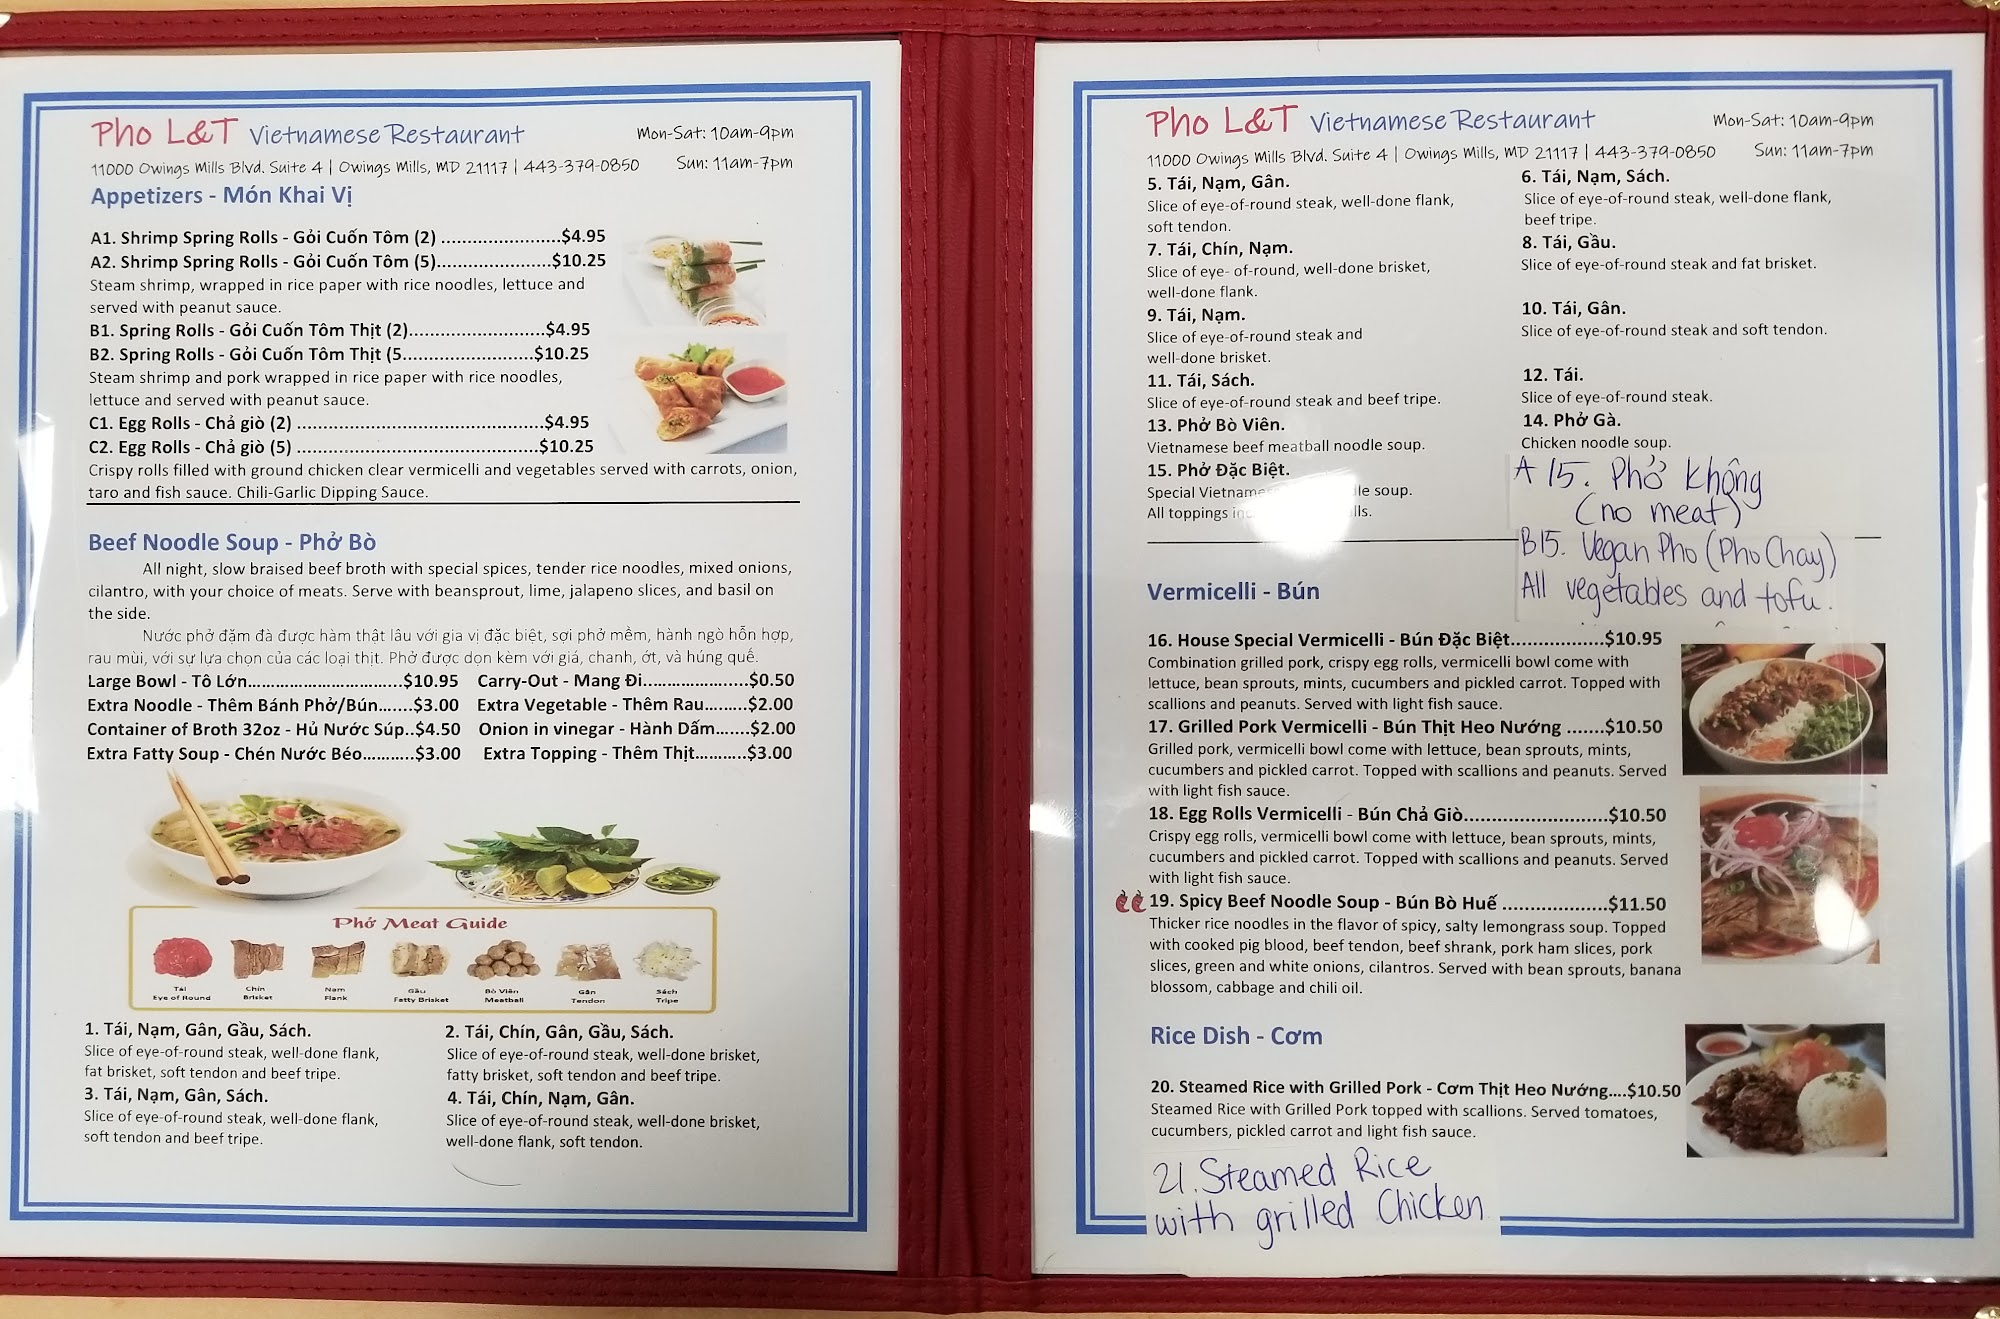 Pho L&T Vietnamese Restaurant
Mon-Sat: 10am-9pm
11000 Owings Mills Blvd. Suite 4 | Owings Mills, MD 21117 | 443-379-0850
Sun: 11am-7pm
Appetizers - Món Khai Vị
A1. Shrimp Spring Rolls - Gỏi Cuốn Tôm (2) .......................$4.95
A2. Shrimp Spring Rolls - Gỏi Cuốn Tôm (5)......................$10.25
Steam shrimp, wrapped in rice paper with rice noodles, lettuce and
served with peanut sauce.
B1. Spring Rolls - Gỏi Cuốn Tôm Thịt (2)..........................$4.95
B2. Spring Rolls - Gỏi Cuốn Tôm Thịt (5.........................$10.25
Steam shrimp and pork wrapped in rice paper with rice noodles,
lettuce and served with peanut sauce.
C1. Egg Rolls - Chả giò (2) ...............................................$4.95
C2. Egg Rolls - Chả giò (5) ..............................................$10.25
Crispy rolls filled with ground chicken clear vermicelli and vegetables served with carrots, onion,
taro and fish sauce. Chili-Garlic Dipping Sauce.
Beef Noodle Soup - Phở Bò
All night, slow braised beef broth with special spices, tender rice noodles, mixed onions,
cilantro, with your choice of meats. Serve with beansprout, lime, jalapeno slices, and basil on
the side.
Nước phở đặm đà được hàm thật lâu với gia vị đặc biệt, sợi phở mềm, hành ngò hỗn hợp,
rau mùi, với sự lựa chọn của các loại thịt. Phở được dọn kèm với giá, chanh, ớt, và húng quế.
Large Bowl - Tô Lớn..............................$10.95 Carry-Out - Mang Đi....................$0.50
Extra Noodle - Thêm Bánh Phở/Bún.......$3.00 Extra Vegetable - Thêm Rau........$2.00
Container of Broth 32oz - Hủ Nước Súp..$4.50 Onion in vinegar - Hành Dấm.......$2.00
Extra Fatty Soup - Chén Nước Béo..........$3.00 Extra Topping - Thêm Thịt...........$3.00
Phở Meat Guide
Tái Chín Nạm Gầu Bò Viên Gân Sách
Eye of Round Brisket Flank Fatty Brisket Meatball Tendon Tripe
1. Tái, Nạm, Gân, Gầu, Sách.
Slice of eye-of-round steak, well-done flank,
fat brisket, soft tendon and beef tripe.
2. Tái, Chín, Gân, Gầu, Sách.
Slice of eye-of-round steak, well-done brisket,
fatty brisket, soft tendon and beef tripe.
3. Tái, Nạm, Gân, Sách.
Slice of eye-of-round steak, well-done flank,
soft tendon and beef tripe.
4. Tái, Chín, Nạm, Gân.
Slice of eye-of-round steak, well-done brisket,
well-done flank, soft tendon.
Pho L&T Vietnamese Restaurant
Mon-Sat: 10am-9pm
11000 Owings Mills Blvd. Suite 4 | Owings Mills, MD 21117 | 443-379-0850
Sun: 11am-7pm
5. Tái, Nạm, Gân.
Slice of eye-of-round steak, well-done flank,
soft tendon.
6. Tái, Nạm, Sách.
Slice of eye-of-round steak, well-done flank,
beef tripe.
7. Tái, Chín, Nạm.
Slice of eye- of-round, well-done brisket,
well-done flank.
8. Tái, Gầu.
Slice of eye-of-round steak and fat brisket.
9. Tái, Nạm.
Slice of eye-of-round steak and
well-done brisket.
10. Tái, Gân.
Slice of eye-of-round steak and soft tendon.
11. Tái, Sách.
Slice of eye-of-round steak and beef tripe.
12. Tái.
Slice of eye-of-round steak.
13. Phở Bò Viên.
Vietnamese beef meatball noodle soup.
14. Phở Gà.
Chicken noodle soup.
15. Phở Đặc Biệt.
Special soup.
All toppings
A 15. Phở không
(no meat)
B15. Vegan Pho (Pho Chay)
All vegetables and tofu.
Vermicelli - Bún
16. House Special Vermicelli - Bún Đặc Biệt..................$10.95
Combination grilled pork, crispy egg rolls, vermicelli bowl come with
lettuce, bean sprouts, mints, cucumbers and pickled carrot. Topped with
scallions and peanuts. Served with light fish sauce.
17. Grilled Pork Vermicelli - Bún Thịt Heo Nướng .......$10.50
Grilled pork, vermicelli bowl come with lettuce, bean sprouts, mints,
cucumbers and pickled carrot. Topped with scallions and peanuts. Served
with light fish sauce.
18. Egg Rolls Vermicelli - Bún Chả Giò............................$10.50
Crispy egg rolls, vermicelli bowl come with lettuce, bean sprouts, mints,
cucumbers and pickled carrot. Topped with scallions and peanuts. Served
with light fish sauce.
19. Spicy Beef Noodle Soup - Bún Bò Huế ....................$11.50
Thicker rice noodles in the flavor of spicy, salty lemongrass soup. Topped
with cooked pig blood, beef tendon, beef shrank, pork ham slices, pork
slices, green and white onions, cilantros. Served with bean sprouts, banana
blossom, cabbage and chili oil.
Rice Dish - Cơm
20. Steamed Rice with Grilled Pork - Cơm Thịt Heo Nướng....$10.50
Steamed Rice with Grilled Pork topped with scallions. Served tomatoes,
cucumbers, pickled carrot and light fish sauce.
21. Steamed Rice
with grilled Chicken